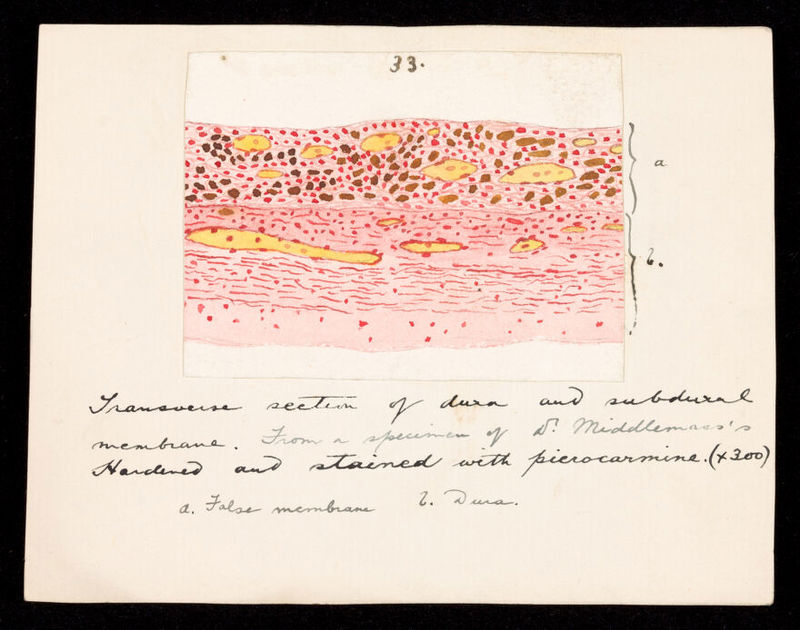 33.
a
b.
Transverse section of dura and subdural
membrane. From a specimen of Dr Middlemass's
Hardened and stained with picrocarmine. (x300)
a. False membrane b. Dura.